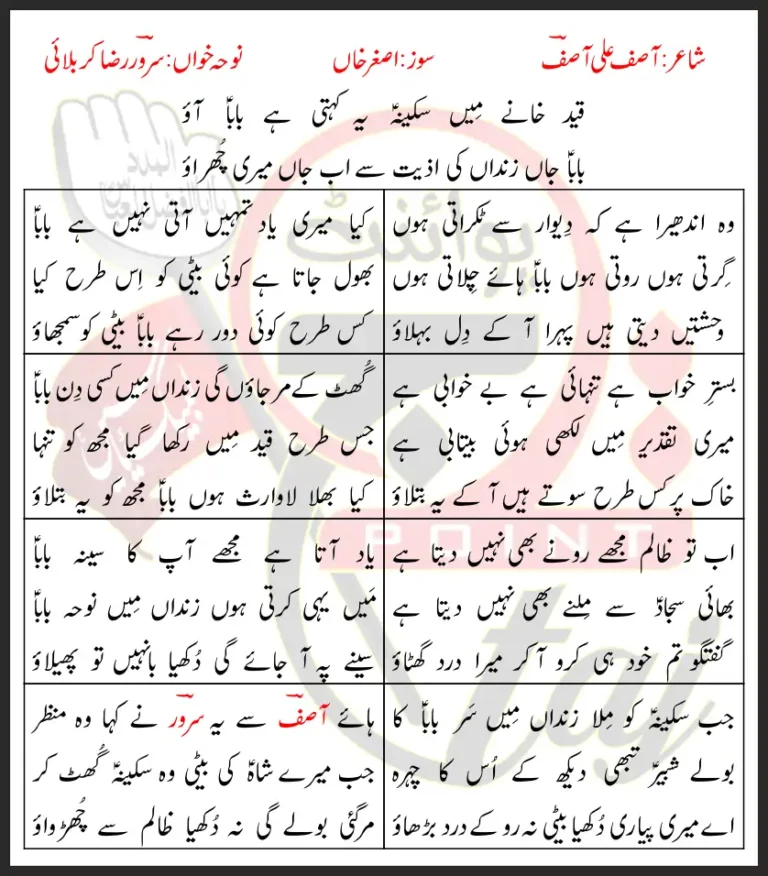 شاعر: آصف علی آصفؔ
سوز: اصغر خاں
نوحہ خواں: سرورؔ رضا کربلائی
قید خانے مِیں سکینہؑ یہ کہتی ہے باباؑ آؤ
باباؑ جاں زنداں کی اذیت سے اب جاں میری چُھڑاؤ
وہ اندھیرا ہے کہ دِیوار سے ٹکراتی ہوں
گِرتی ہوں روتی ہوں باباؑ ہائے چِلاتی ہوں
وحشتیں دیتی ہیں پہرا آ کے دِل بہلاؤ
کیا میری یاد تمہیں آتی نہیں ہے باباؑ
بھول جاتا ہے کوئی بیٹی کو اِس طرح کیا
کس طرح کوئی دور رہے باباؑ بیٹی کو سمجھاؤ
بسترِ خواب ہے تنہائی ہے بے خوابی ہے
میری تقدیر مِیں لکھی ہوئی بیتابی ہے
خاک پر کس طرح سوتے ہیں آ کے یہ بتلاؤ
گُھٹ کے مر جاؤں گی زنداں مِیں کسی دِن باباؑ
جس طرح قید مِیں رکھا گیا مجھ کو تنہا
کیا بھلا لاوارث ہوں باباؑ مجھ کو یہ بتلاؤ
اب تو ظالم مجھے رونے بھی نہیں دیتا ہے
بھائی سجادؑ سے مِلنے بھی نہیں دیتا ہے
گفتگو تم خود ہی کرو آ کر میرا درد گھٹاؤ
یاد آتا ہے مجھے آپ کا سینہ باباؑ
مَیں یہی کرتی ہوں زنداں مِیں نوحہ باباؑ
سینے پہ آ جائے گی دُکھیا بانہیں تو پھیلاؤ
جب سکینہؑ کو مِلا زنداں مِیں سَر باباؑ کا
بولے شبیرؑ تبھی دیکھ کے اُس کا چہرہ
اے میری پیاری دُکھیا بیٹی نہ رو کے درد بڑھاؤ
ہائے آصفؔ سے یہ سرورؔ نے کہا وہ منظر
جب میرے شاہؑ کی بیٹی وہ سکینہؑ گُھٹ کر
مر گئی بولے گی نہ دُکھیا ظالم سے چُھڑواؤ
پوائنٹ
POINT
taj
المدد